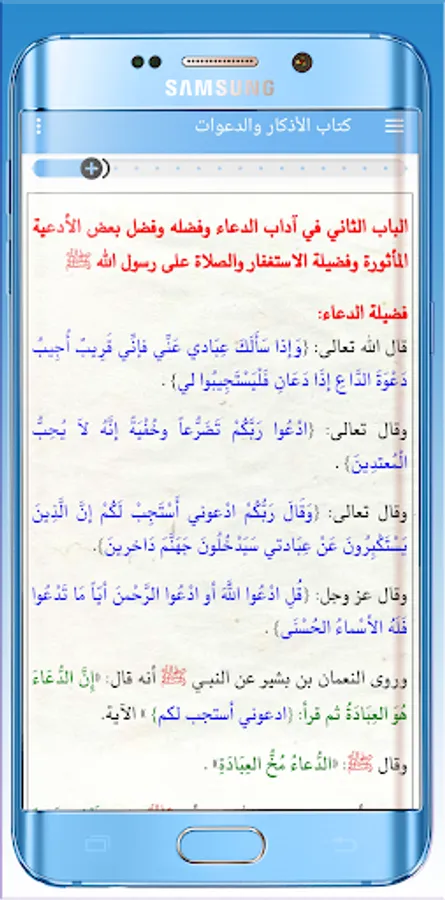 SAMSUNG
كتاب الأذكار والدعوات
الباب الثاني في آداب الدعاء وفضله وفضل بعض الأدعية
المأثورة وفضيلة الاستغفار والصلاة على رسول الله ﷺ
فضيلة الدعاء:
قال الله تعالى: {وَإِذا سَأَلَكَ عِبَادي عَنِّي فَإنِّي قَرِيبٌ أُجِيبُ
دَعْوَةَ الدَّاعِ إذَا دَعَانِ فَلْيَسْتَجِيبُوا لي} .
وقال تعالى: {ادْعُوا رَبَّكُمْ تَضَرُّعاً وخُفْيَةً إنَّهُ لاَ يُحِبُّ
الْمُعتدِينَ} .
وقال تعالى: {وَقَالَ رَبُّكُمْ ادْعوني أَسْتَجِبْ لَكُمْ إنَّ الَّذِينَ
يَسْتَكْبِرُونَ عَنْ عِبَادتي سَيَدْخُلُونَ جَهَنَّمَ دَاخرينَ}.
وقال عز وجل: {قُلِ ادْعُوا اللَّهَ أو ادْعُوا الرَّحْمنَ أيّاً مَا تَدْعُوا
فَلَهُ الأَسْماءُ الحُسْنَى} .
وروى النعمان بن بشير عن النبي ﷺ أنه قال: «إِنَّ الدُّعَاءَ
هُوَ العِبَادَةُ ثم قرأ: {ادعوني أستجب لكم} » الآية.
وقال ﷺ: «الدُّعاءُ مُخُّ العِبَادَةِ» .